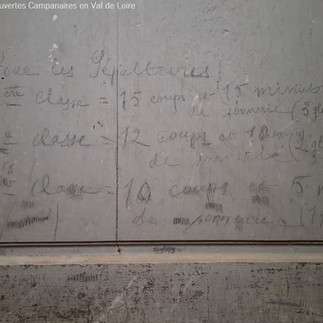 ouvertes Campanaires en Val de Loire
Pour les Sépultures
ère classe = 15 coups et 15 minutes
de sonnerie (3
e classe = 12 coups et 10
de
classe = 10 coups et 5 m
de sonnerie (1